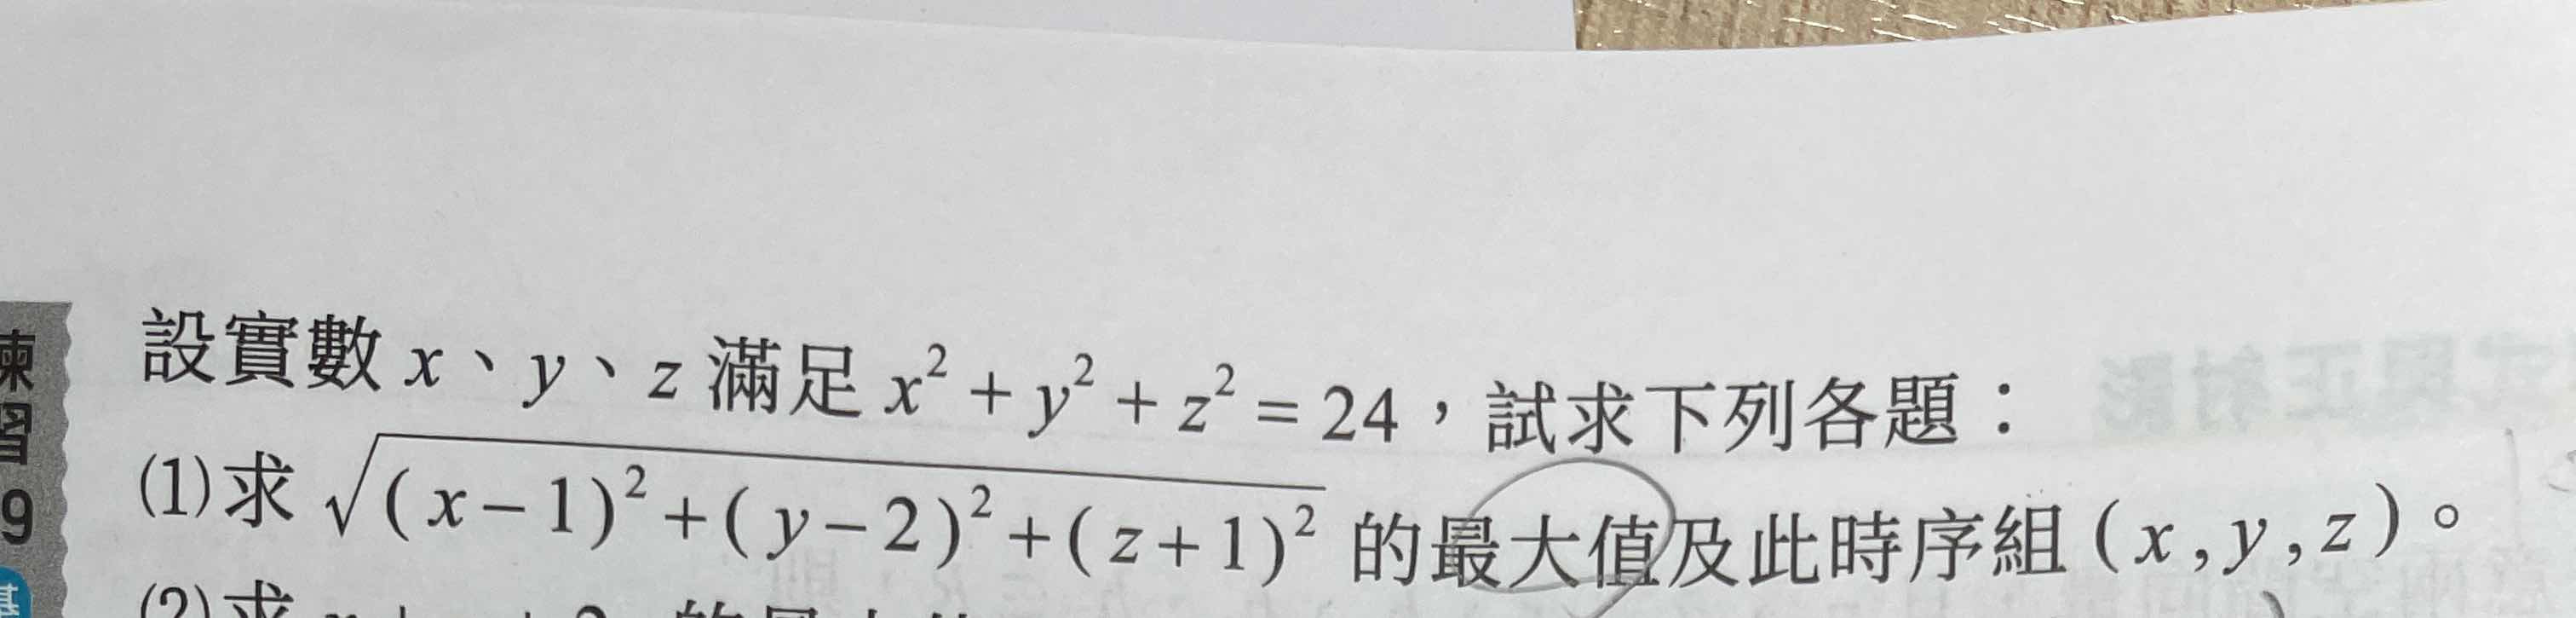 設實數 x、y、z 滿足 x² + y² + z² = 24，試求下列各題：
練習 9
(1)求 √((x−1)²+(y−2)²+(z+1)²) 的最大值及此時序組(x,y,z)。
基
(2)求